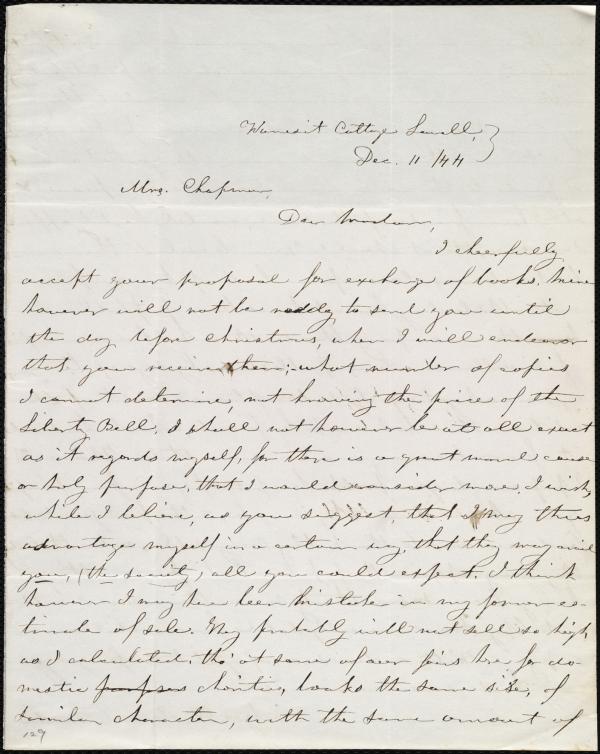 Wamesit Cottage Lowell,
Dec. 11 /44
Mrs. Chapman,
Dear Madam,
I cheerfully
accept your proposal for exchange of books. Mine
however will not be ready to send you until
the day before Christmas, when I will endeavor
that you receive them; what number of copies
I cannot determine, not knowing the price of the
Liberty Bell. I shall not however be at all exact
as it regards myself, for there is a great moral cause
or holy purpose, that I would consider more. I wish,
while I believe, as you suggest, that I may thus
advantage myself in a certain way, that they may avail
you, (the society) all you could expect. I think
however I may have been mistaken in my former es-
timate of sale. They probably will not sell so high
as I calculated, tho' at some of our fairs here for do-
mestic charities, books the same size, of
similar character, with the same amount of
129